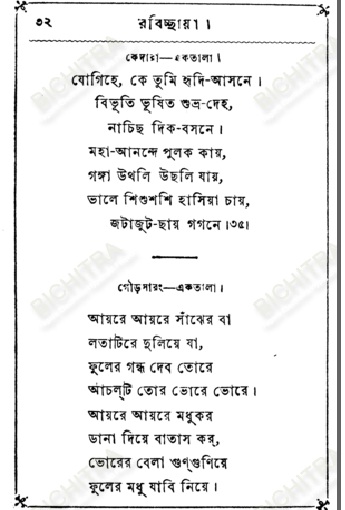 ৩২
রবিচ্ছায়া ॥
কেদারা—একতালা ॥
যোগিহে, কে তুমি হৃদি-আসনে ।
বিভূতি ভূষিত শুভ্র-দেহ,
নাচিছ দিক-বসনে ।
মহা-আনন্দে পুলক কায়,
গঙ্গা উথলি উছলি যায়,
ভালে শিশুশশি হাসিয়া চায়,
জটাজুট-ছায় গগনে ।৩৫॥
গৌড় সারং—একতালা ।
আয়রে আয়রে সাঁঝের বা
লতাটিরে দুলিয়ে যা,
ফুলের গন্ধ দেব তোরে
আঁচলটি তোর ভোরে ভোরে ।
আয়রে আয়রে মধুকর
ডানা দিয়ে বাতাস কর্,
ভোরের বেলা গুণ্‌গুণিয়ে
ফুলের মধু যাবি নিয়ে ।
BICHITRA
BICHITRA
BICHITRA
BICHITRA
BICHITRA
BICHITRA